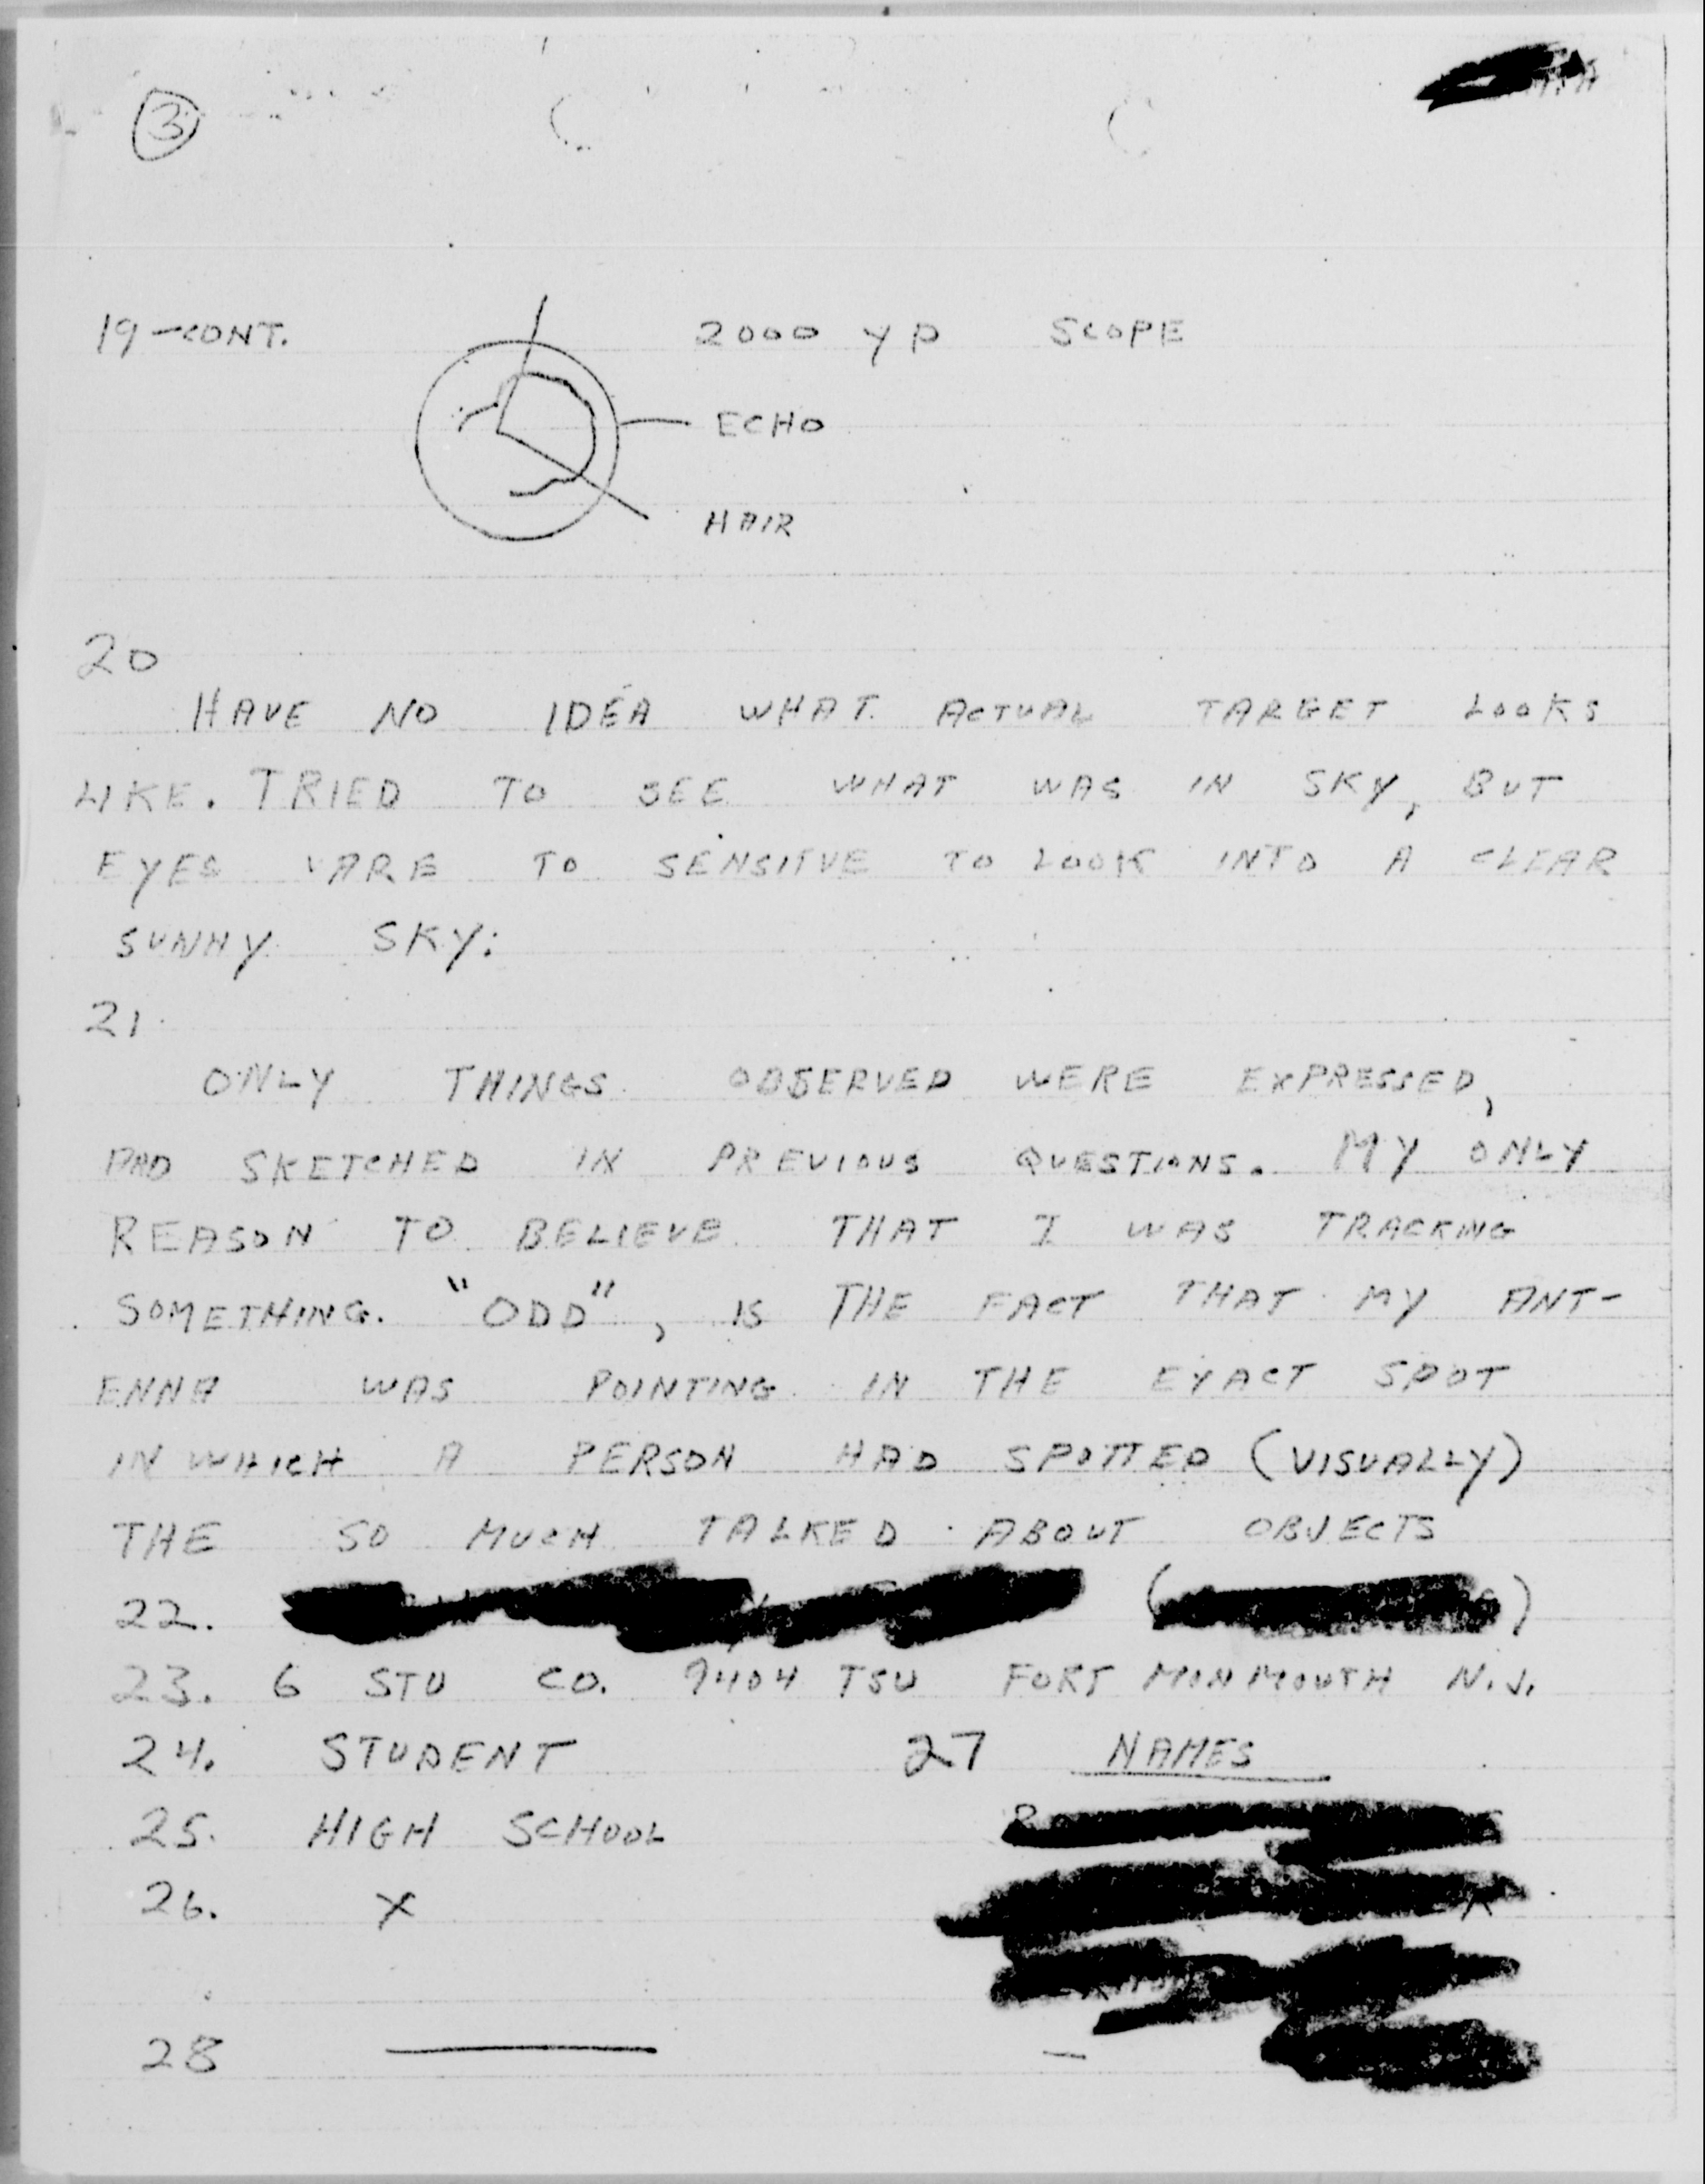 3
19-CONT.
2000 YD SCOPE
ECHO
HAIR
20
HAVE NO IDEA WHAT ACTUAL TARGET LOOKS
LIKE. TRIED TO SEE WHAT WAS IN SKY, BUT
EYES ARE TO SENSITVE TO LOOK INTO A CLEAR
SUNNY SKY.
21.
ONLY THINGS OBSERVED WERE EXPRESSED,
AND SKETCHED IN PREVIOUS QUESTIONS. MY ONLY
REASON TO BELIEVE THAT I WAS TRACKING
SOMETHING. "ODD", IS THE FACT THAT MY ANT-
ENNA WAS POINTING IN THE EXACT SPOT
IN WHICH A PERSON HAD SPOTTED (VISUALLY)
THE SO MUCH TALKED ABOUT OBJECTS
22. ( )
23. 6 STU CO. 9404 TSU FORT MONMOUTH N.J.
24. STUDENT 27 NAMES
25. HIGH SCHOOL
26. X
28 —